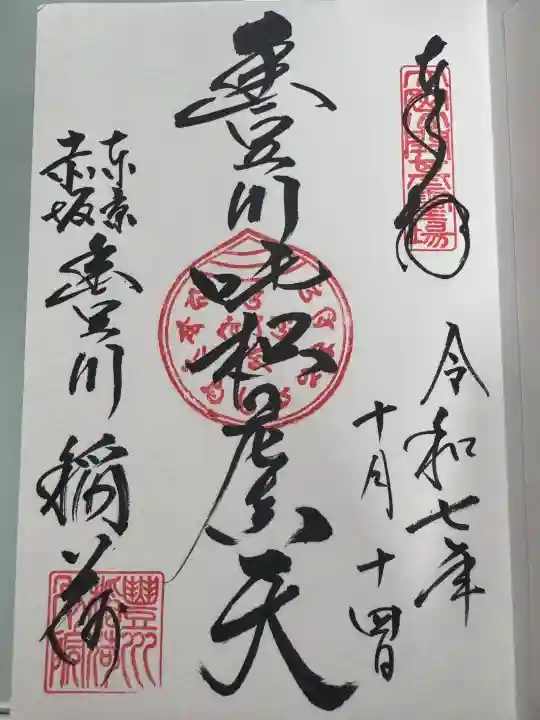 奉拝
令和七年
十月十四日
豊川吒枳尼真天
東京
赤坂
豊川稲荷